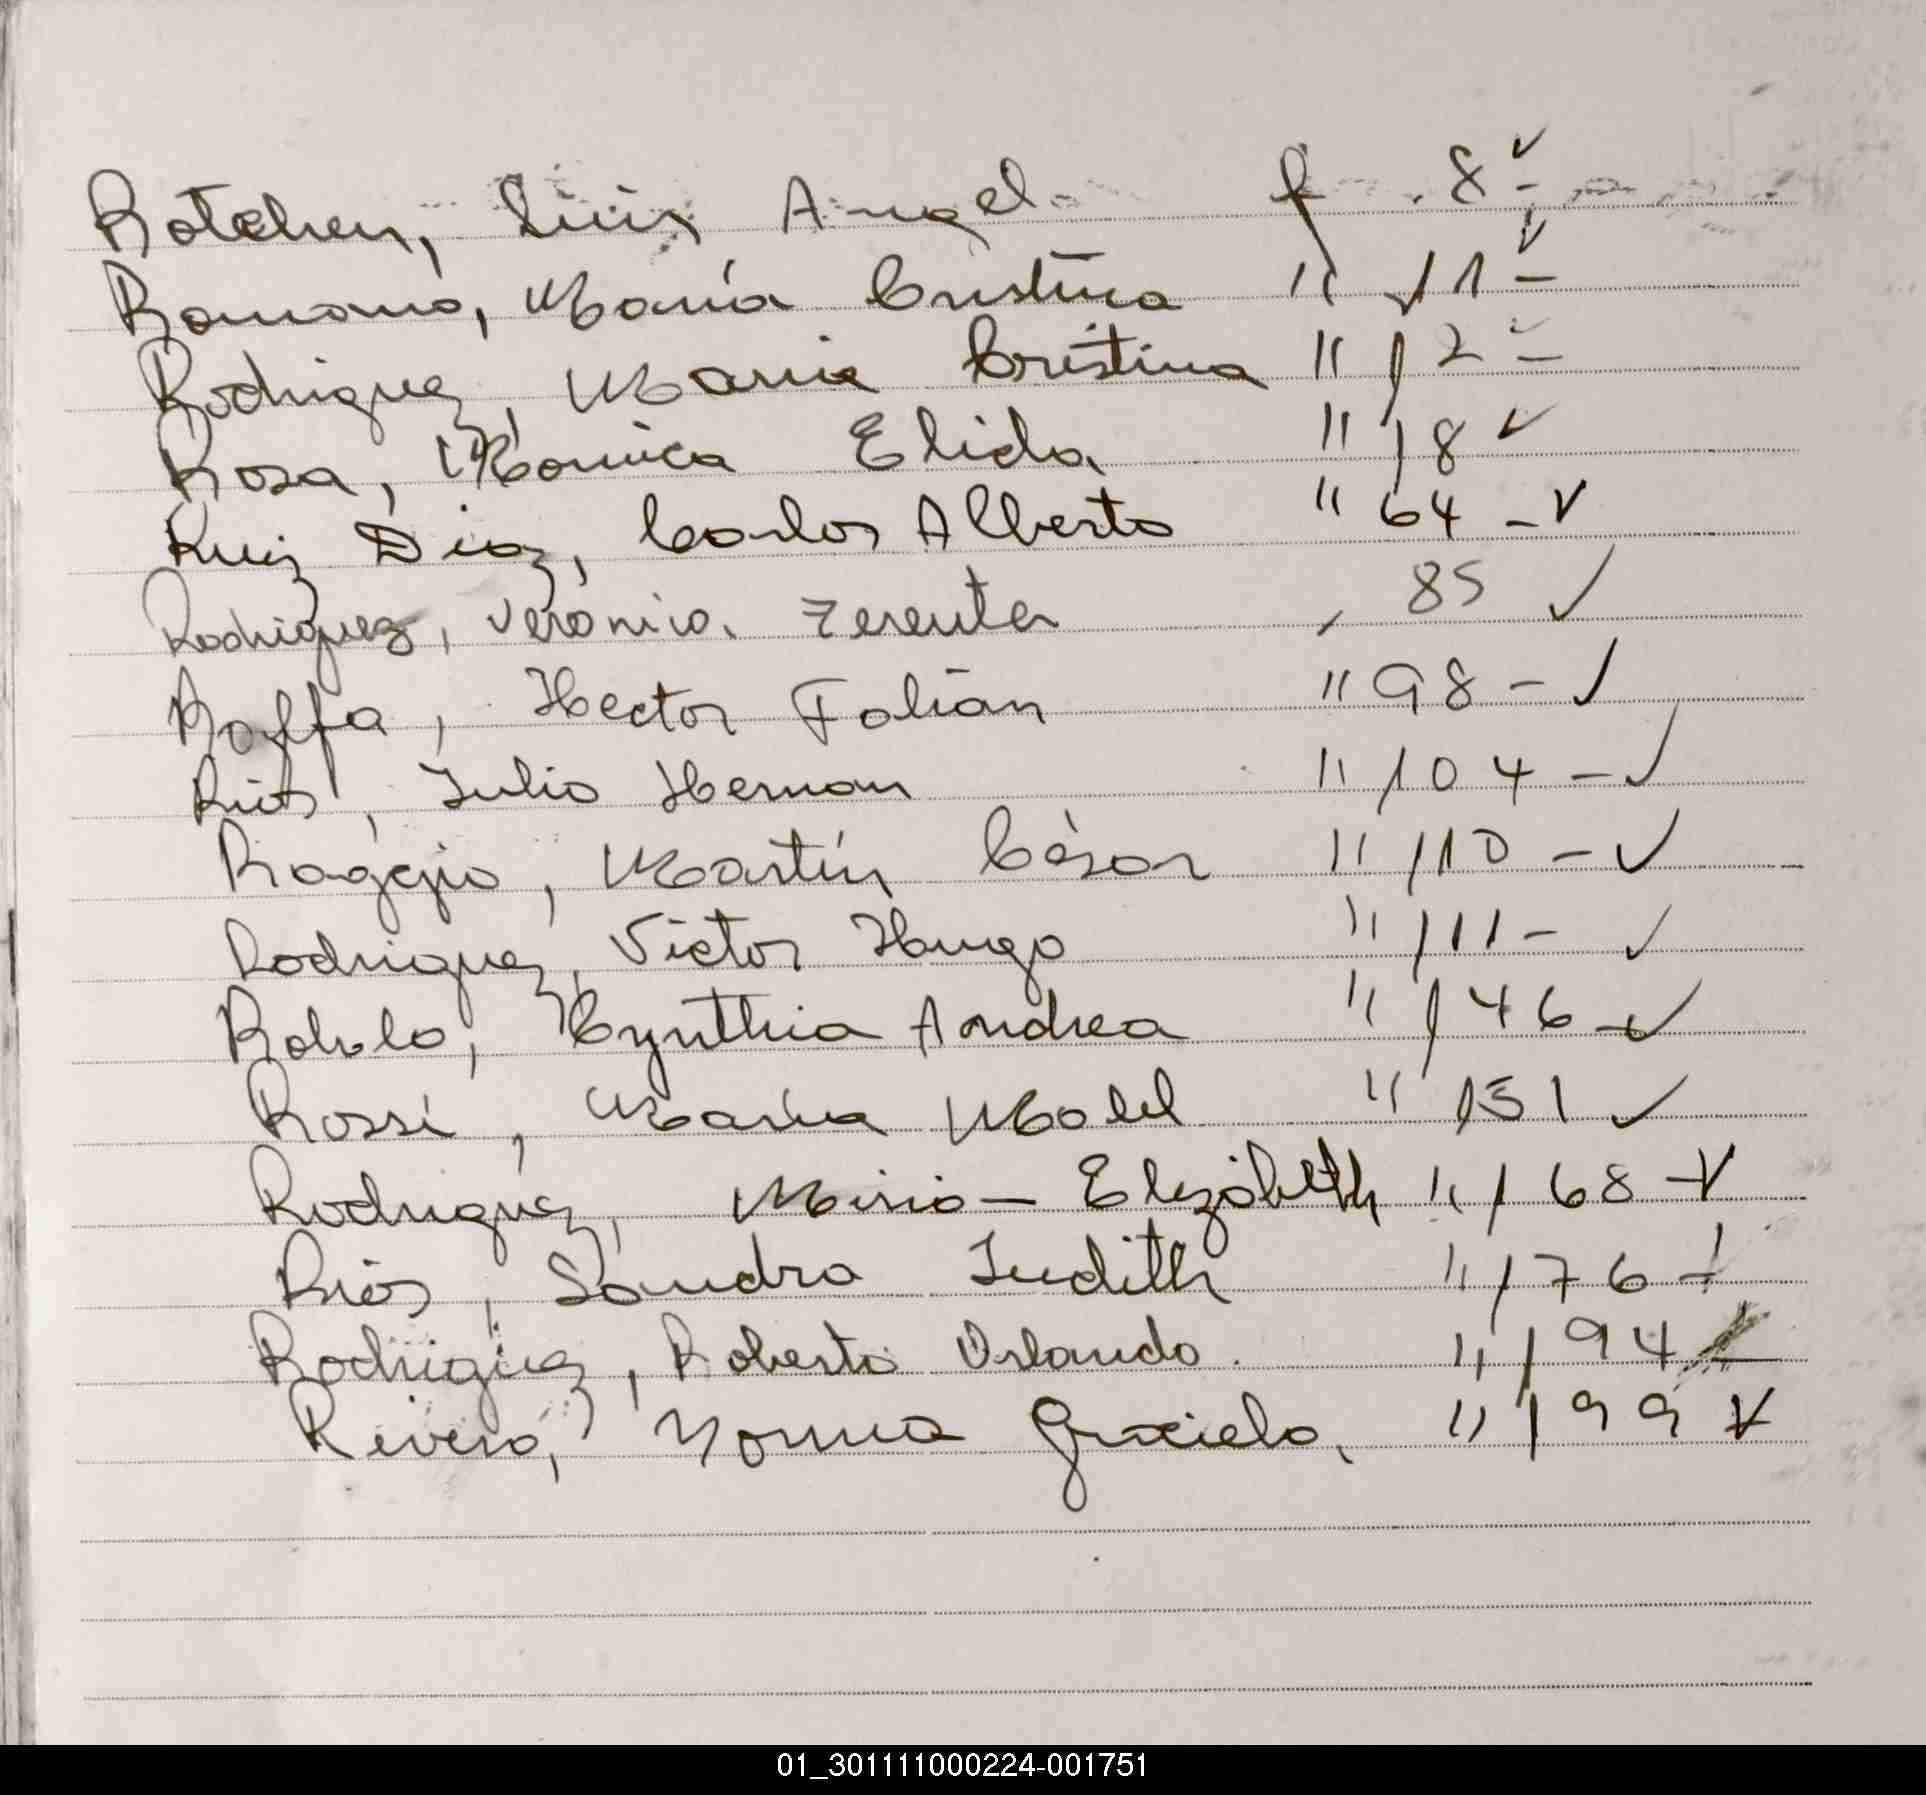 Rotchen, Luis Angel - f 8 -
Romano, María Cristina " 11 -
Rodriguez, Maria Cristina " 12 -
Rosa, Monica Elida " 18
Ruiz Diaz, Carlos Alberto " 64 -
Rodriguez, Verónica 85
Roffa, Hector Fabián " 98 -
Rios, Julio Hernan " 104 -
Raggio, Martín César " 110 -
Rodriguez, Victor Hugo " 111 -
Robolo, Cynthia Andrea " 146 -
Rossi, María Mabel " 151
Rodriguez, Miria - Elizabeth " 168 -
Rios, Sandra Judith " 176 -
Rodriguez, Roberto Orlando. " 194
Rivero, Norma Graciela. " 199
01_301111000224-001751